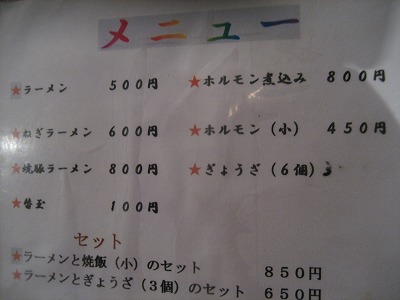 メニュー
★ラーメン ５００円
★ねぎラーメン ６００円
★焼豚ラーメン ８００円
★替玉 １００円
★ホルモン煮込み ８００円
★ホルモン（小） ４５０円
★ぎょうざ（６個）
セット
★ラーメンと焼飯（小）のセット ８５０円
★ラーメンとぎょうざ（３個）のセット ６５０円